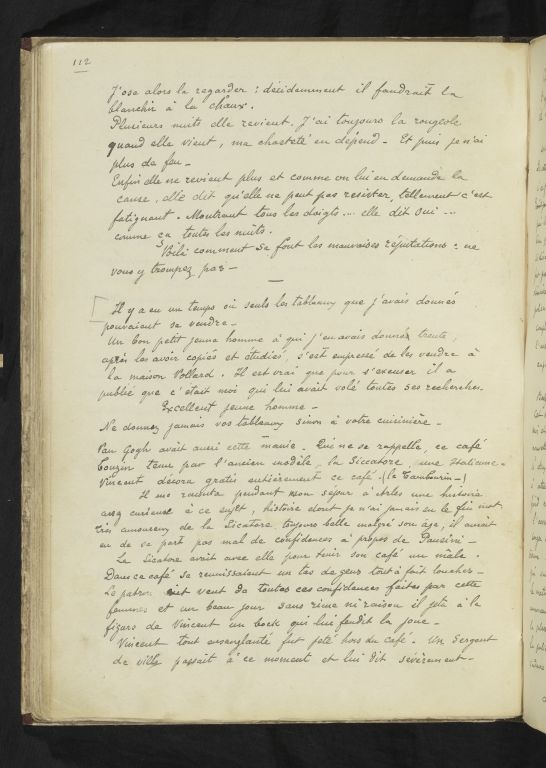 112
J'ose alors la regarder : décidemment il faudrait la
blanchir à la chaux.
Plusieurs nuits elle revient. J'ai toujours la rougeole
quand elle vient, ma chasteté en dépend_ Et puis je n'ai
plus de feu_
Enfin elle ne revient plus et comme on lui en demande la
cause, elle dit qu'elle ne peut pas resister, tellement c'est
fatiguant. Montrant tous les doigts... elle dit oui...
comme ça toutes les nuits.
Voilà comment se font les mauvaises réputations : ne
vous y trompez pas_
Il y a eu un temps où seuls les tableaux que j'avais donnés
pouvaient se vendre_
Un bon petit jeune homme à qui j'en avais donnés trente,
après les avoir copiés et étudiés, s'est empressé de les vendre à
la maison Vollard. Il est vrai que pour s'excuser il a
publié que c'était moi qui lui avait volé toutes ses recherches.
Excellent jeune homme_
Ne donnez jamais vos tableaux sinon à votre cuisinière_
Van Gogh avait aussi cette manie. Qui ne se rappelle, ce café
tenu par l'ancien modèle, la Siccatore, une Italienne_
Vincent décora gratis entièrement ce café (le Tambourin_)
Il me raconta pendant mon séjour à Arles une histoire
assez curieuse à ce sujet, histoire dont je n'ai jamais su le fin mot.
Très amoureux de la Sicatore toujours belle malgré son âge, il aurait
eu de sa part pas mal de confidences à propos de Pausini_
La Sicatore avait avec elle pour tenir son café un mâle.
Dans ce café se reunissaient un tas de gens tout à fait louches_
Le patron eut vent de toutes ces confidences faites par cette
femme et un beau jour sans rime ni raison il jeta à la
figure de Vincent un bock qui lui fendit la joue_
Vincent tout ensanglanté fut jeté hors du café. Un Sergent
de ville passait à ce moment et lui dit sévèrement_